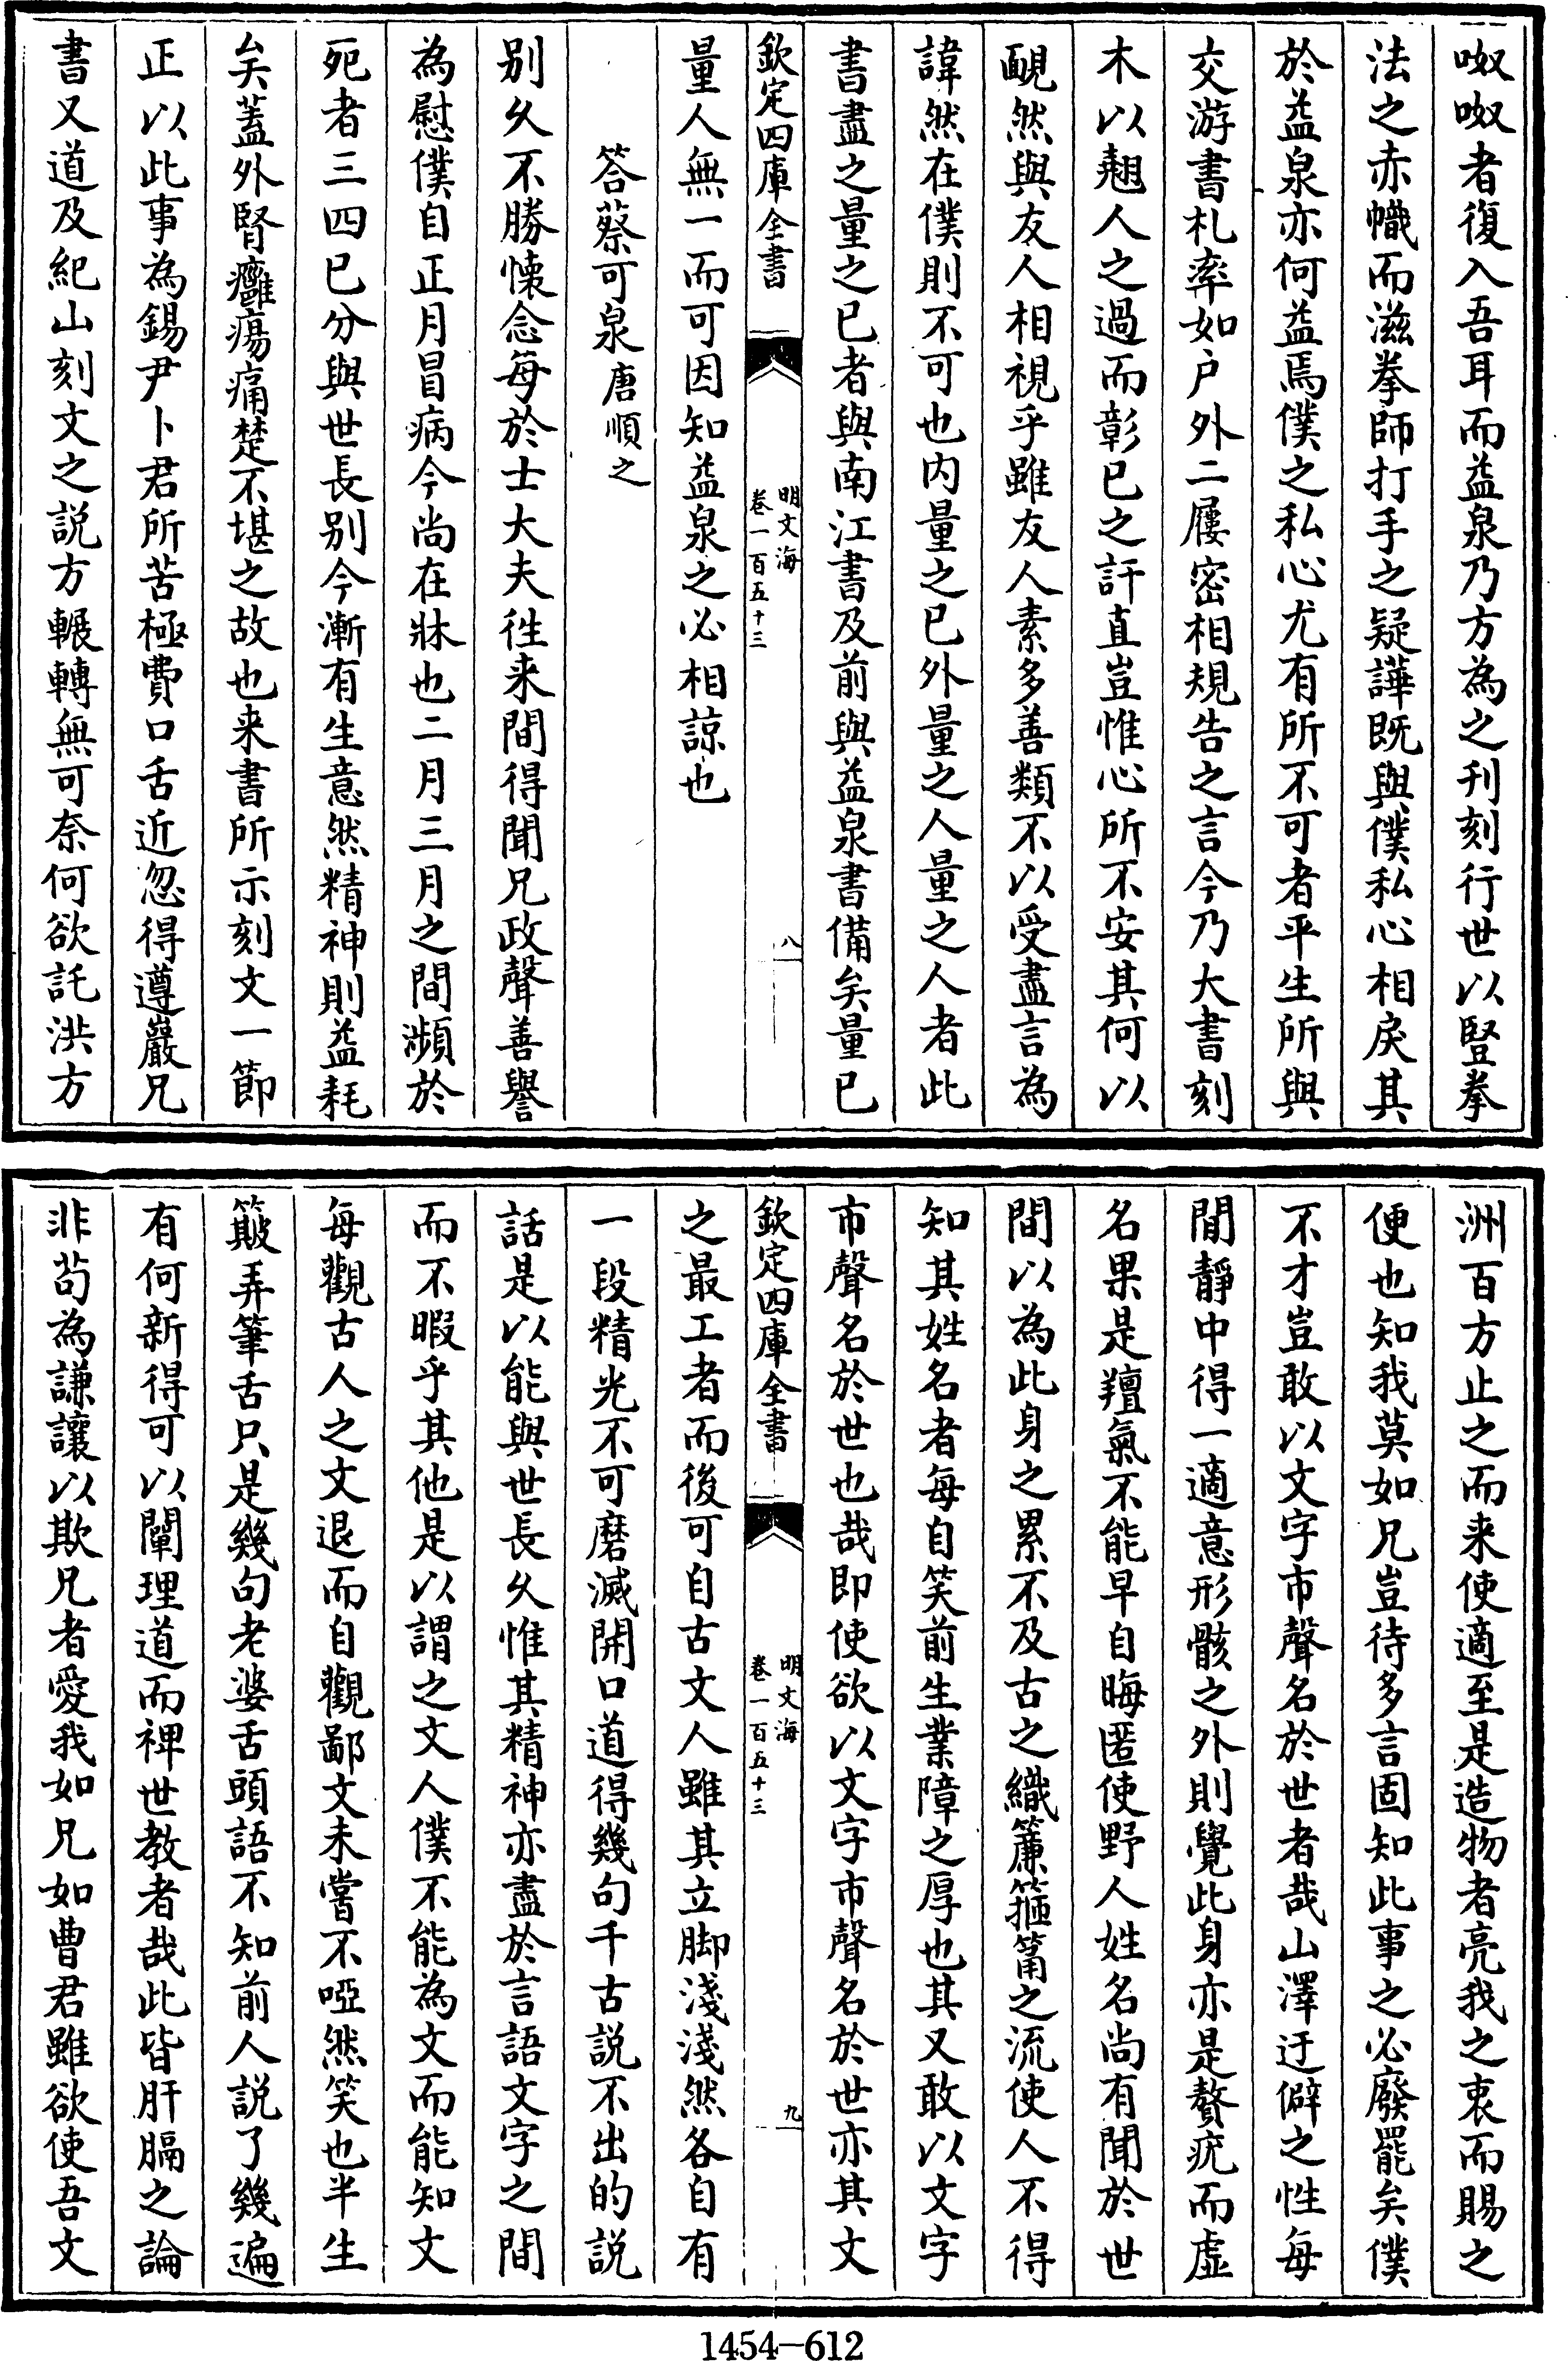 呶呶者復入吾耳而益泉乃方為之刋刻行世以豎拳
法之赤幟而滋拳師打手之疑譁既與僕私心相戾其
於益泉亦何益焉僕之私心尤有所不可者平生所與
交游書札率如户外二屨密相規告之言今乃大書刻
木以翹人之過而彰已之訐直豈惟心所不安其何以
靦然與友人相視乎雖友人素多善類不以受盡言為
諱然在僕則不可也内量之已外量之人量之人者此
書盡之量之已者與南江書及前與益泉書備矣量已
欽定四庫全書
明文海
卷一百五十三
八
量人無一而可因知益泉之必相諒也
答蔡可泉唐順之
别乆不勝懐念每於士大夫徃来間得聞兄政聲善譽
為慰僕自正月冒病今尚在牀也二月三月之間瀕於
死者三四已分與世長别今漸有生意然精神則益耗
矣蓋外腎癰瘍痛楚不堪之故也来書所示刻文一節
正以此事為錫尹卜君所苦極費口舌近忽得遵巖兄
書又道及紀山刻文之説方輾轉無可奈何欲託洪方
洲百方止之而来使適至是造物者亮我之衷而賜之
便也知我莫如兄豈待多言固知此事之必廢罷矣僕
不才豈敢以文字市聲名於世者哉山澤迂僻之性每
閒靜中得一適意形骸之外則覺此身亦是贅疣而虚
名果是羶氣不能早自晦匿使野人姓名尚有聞於世
間以為此身之累不及古之織簾箍筩之流使人不得
知其姓名者每自笑前生業障之厚也其又敢以文字
市聲名於世也哉即使欲以文字市聲名於世亦其文
欽定四庫全書
明文海
卷一百五十三
九
之最工者而後可自古文人雖其立脚淺淺然各自有
一段精光不可磨滅開口道得幾句千古説不出的説
話是以能與世長乆惟其精神亦盡於言語文字之間
而不暇乎其他是以謂之文人僕不能為文而能知文
每觀古人之文退而自觀鄙文未嘗不啞然笑也半生
簸弄筆舌只是幾句老婆舌頭語不知前人説了幾遍
有何新得可以闡理道而裨世教者哉此皆肝膈之論
非苟為謙讓以欺兄者愛我如兄如曹君雖欲使吾文
1454-612